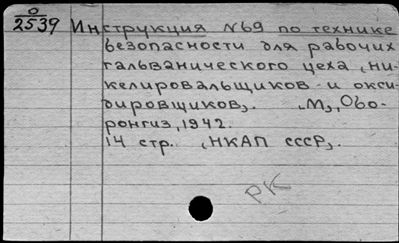 0
2539
Инструкция №69 по технике
безопасности для рабочих
гальванического цеха, ни-
келировальщиков и окси-
дировщиков,. М., Обо-
ронгиз, 1942.
14 стр. (НКАП СССР).
РК